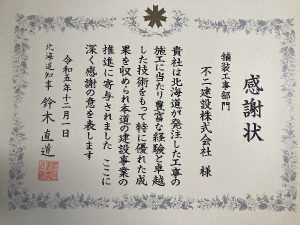 感謝状
舗装工事部門
不二建設株式会社 様
貴社は北海道が発注した工事の
施工に当たり豊富な経験と卓越
した技術をもって特に優れた成
果を収められ本道の建設事業の
推進に寄与されました ここに
深く感謝の意を表します
令和五年十二月一日
北海道知事 鈴木直道